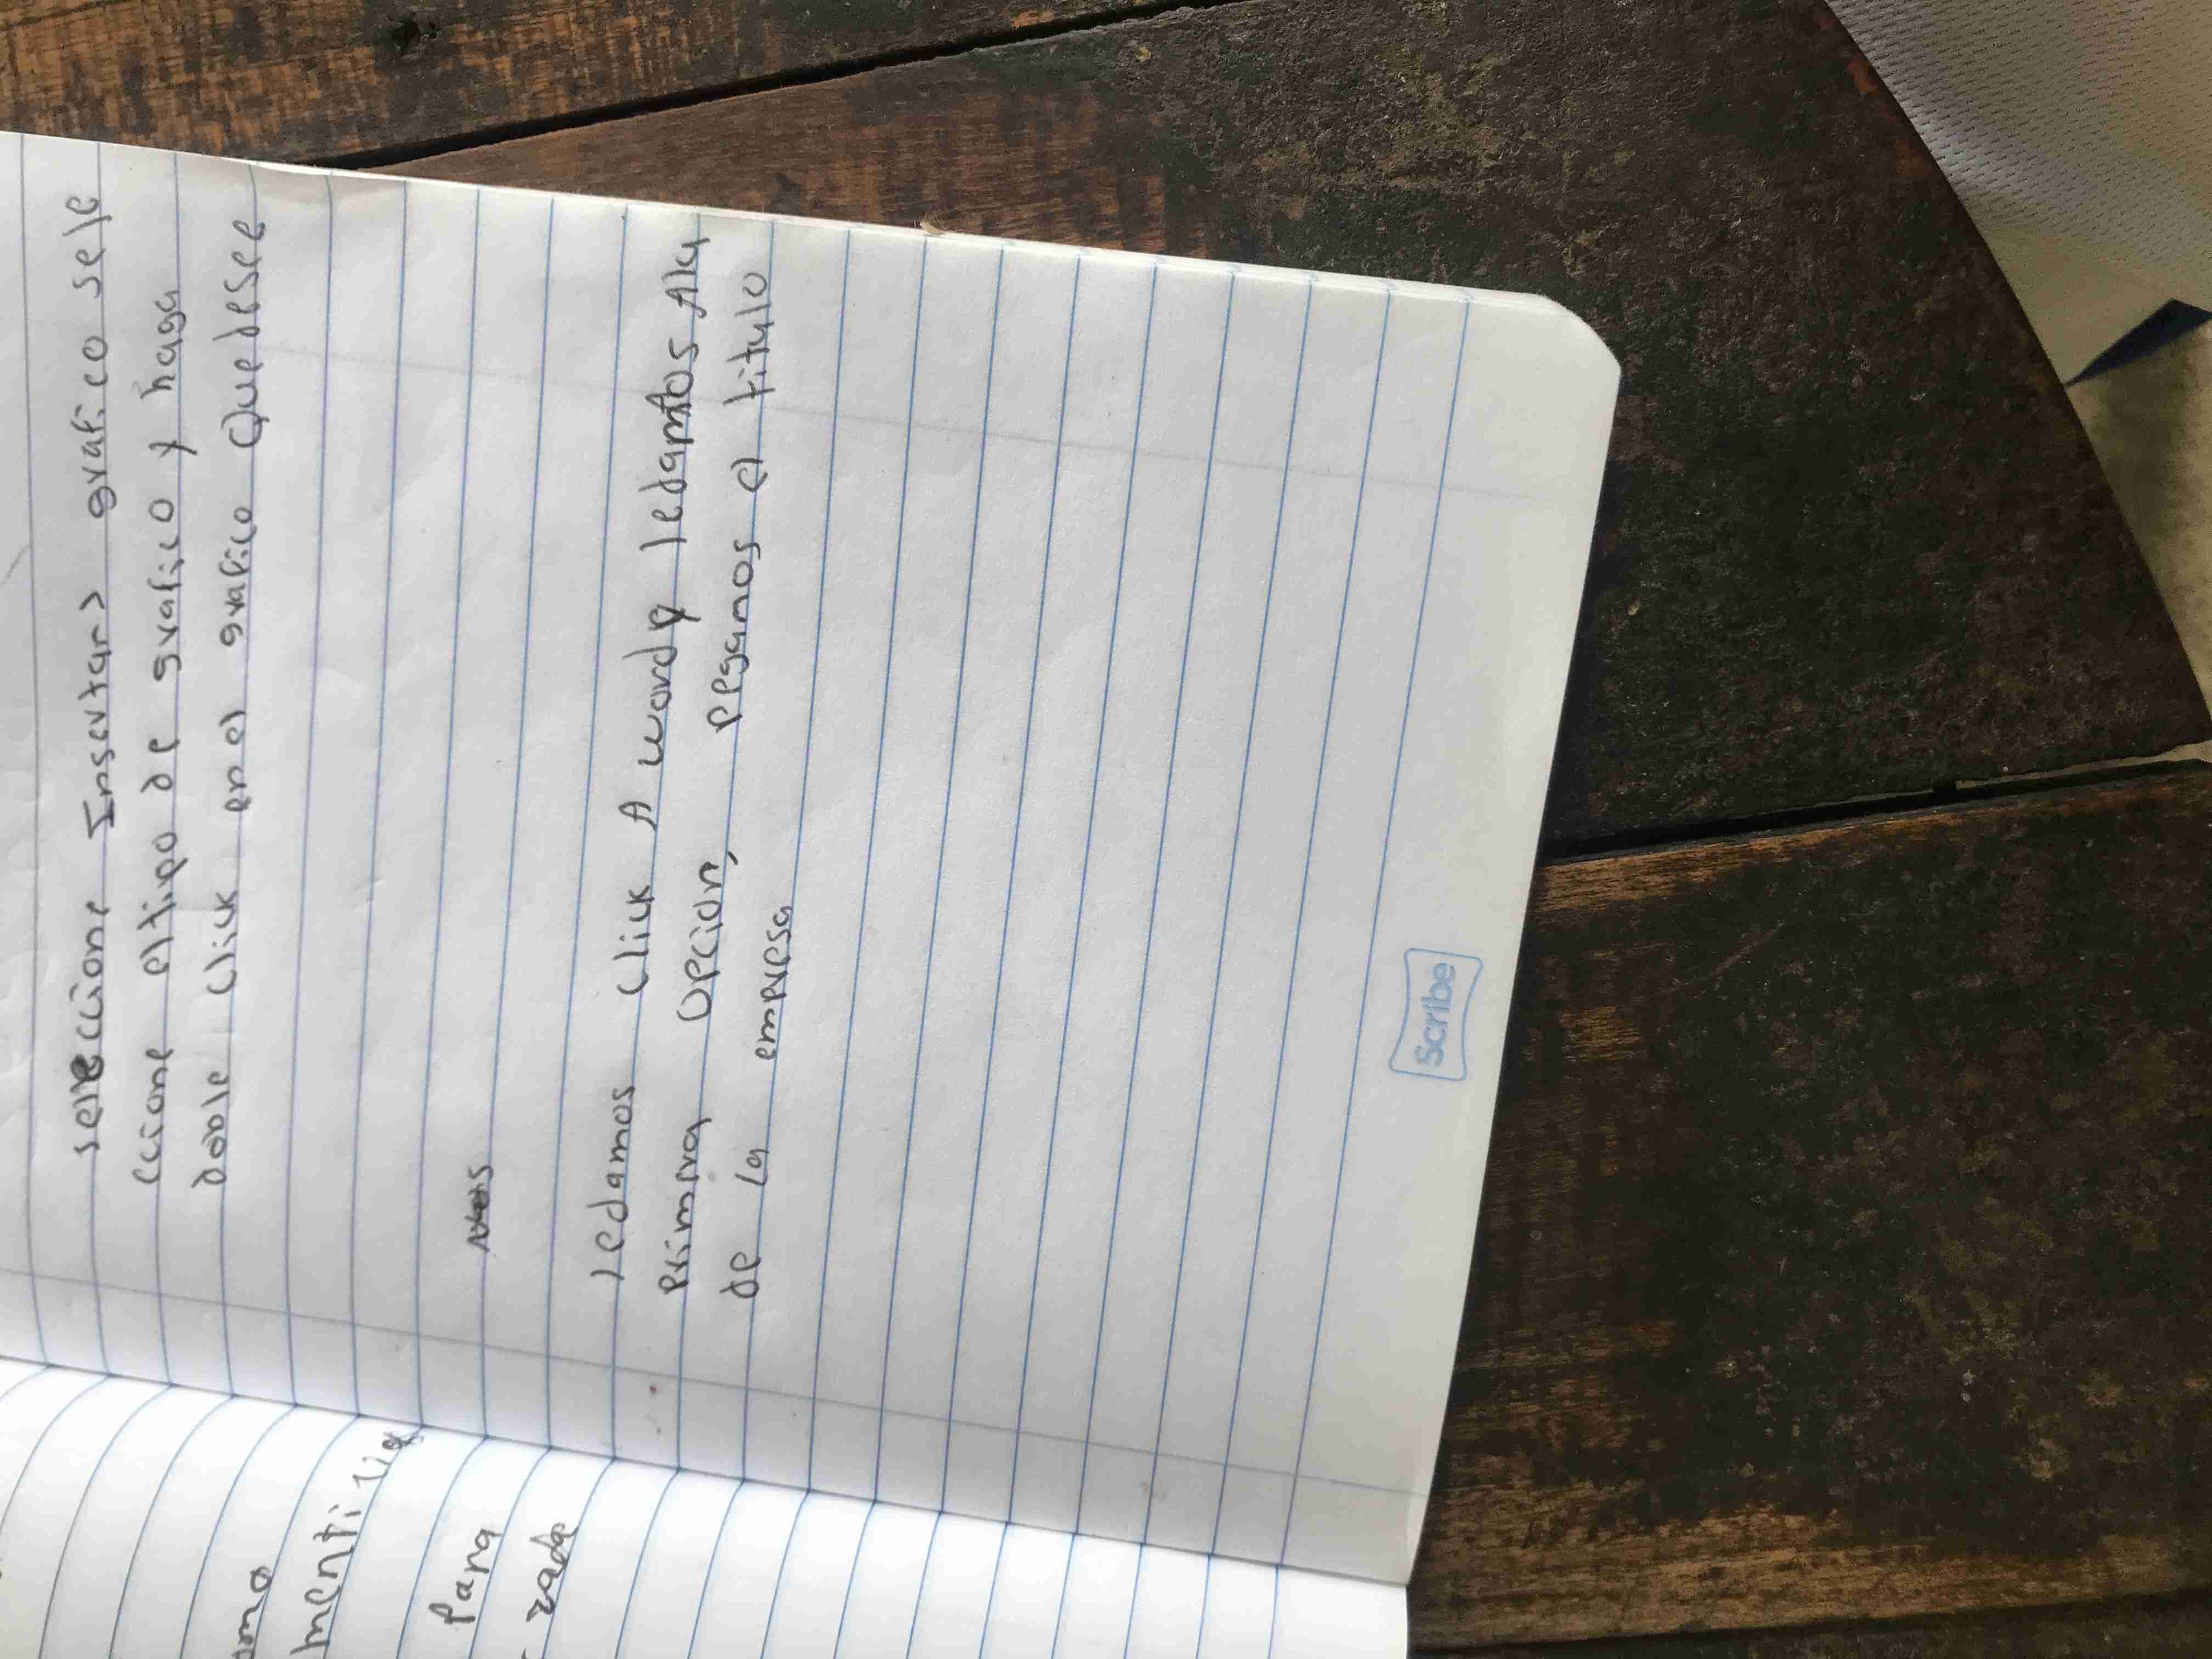 seleccione Insertar> grafico sele
ccione eltipo de grafico y haga
doble click en el grafico Quedesee
ledamos click A word y ledamos Ala
Primera Opcion, pegamos el titulo
de la empresa
Scribe
Para